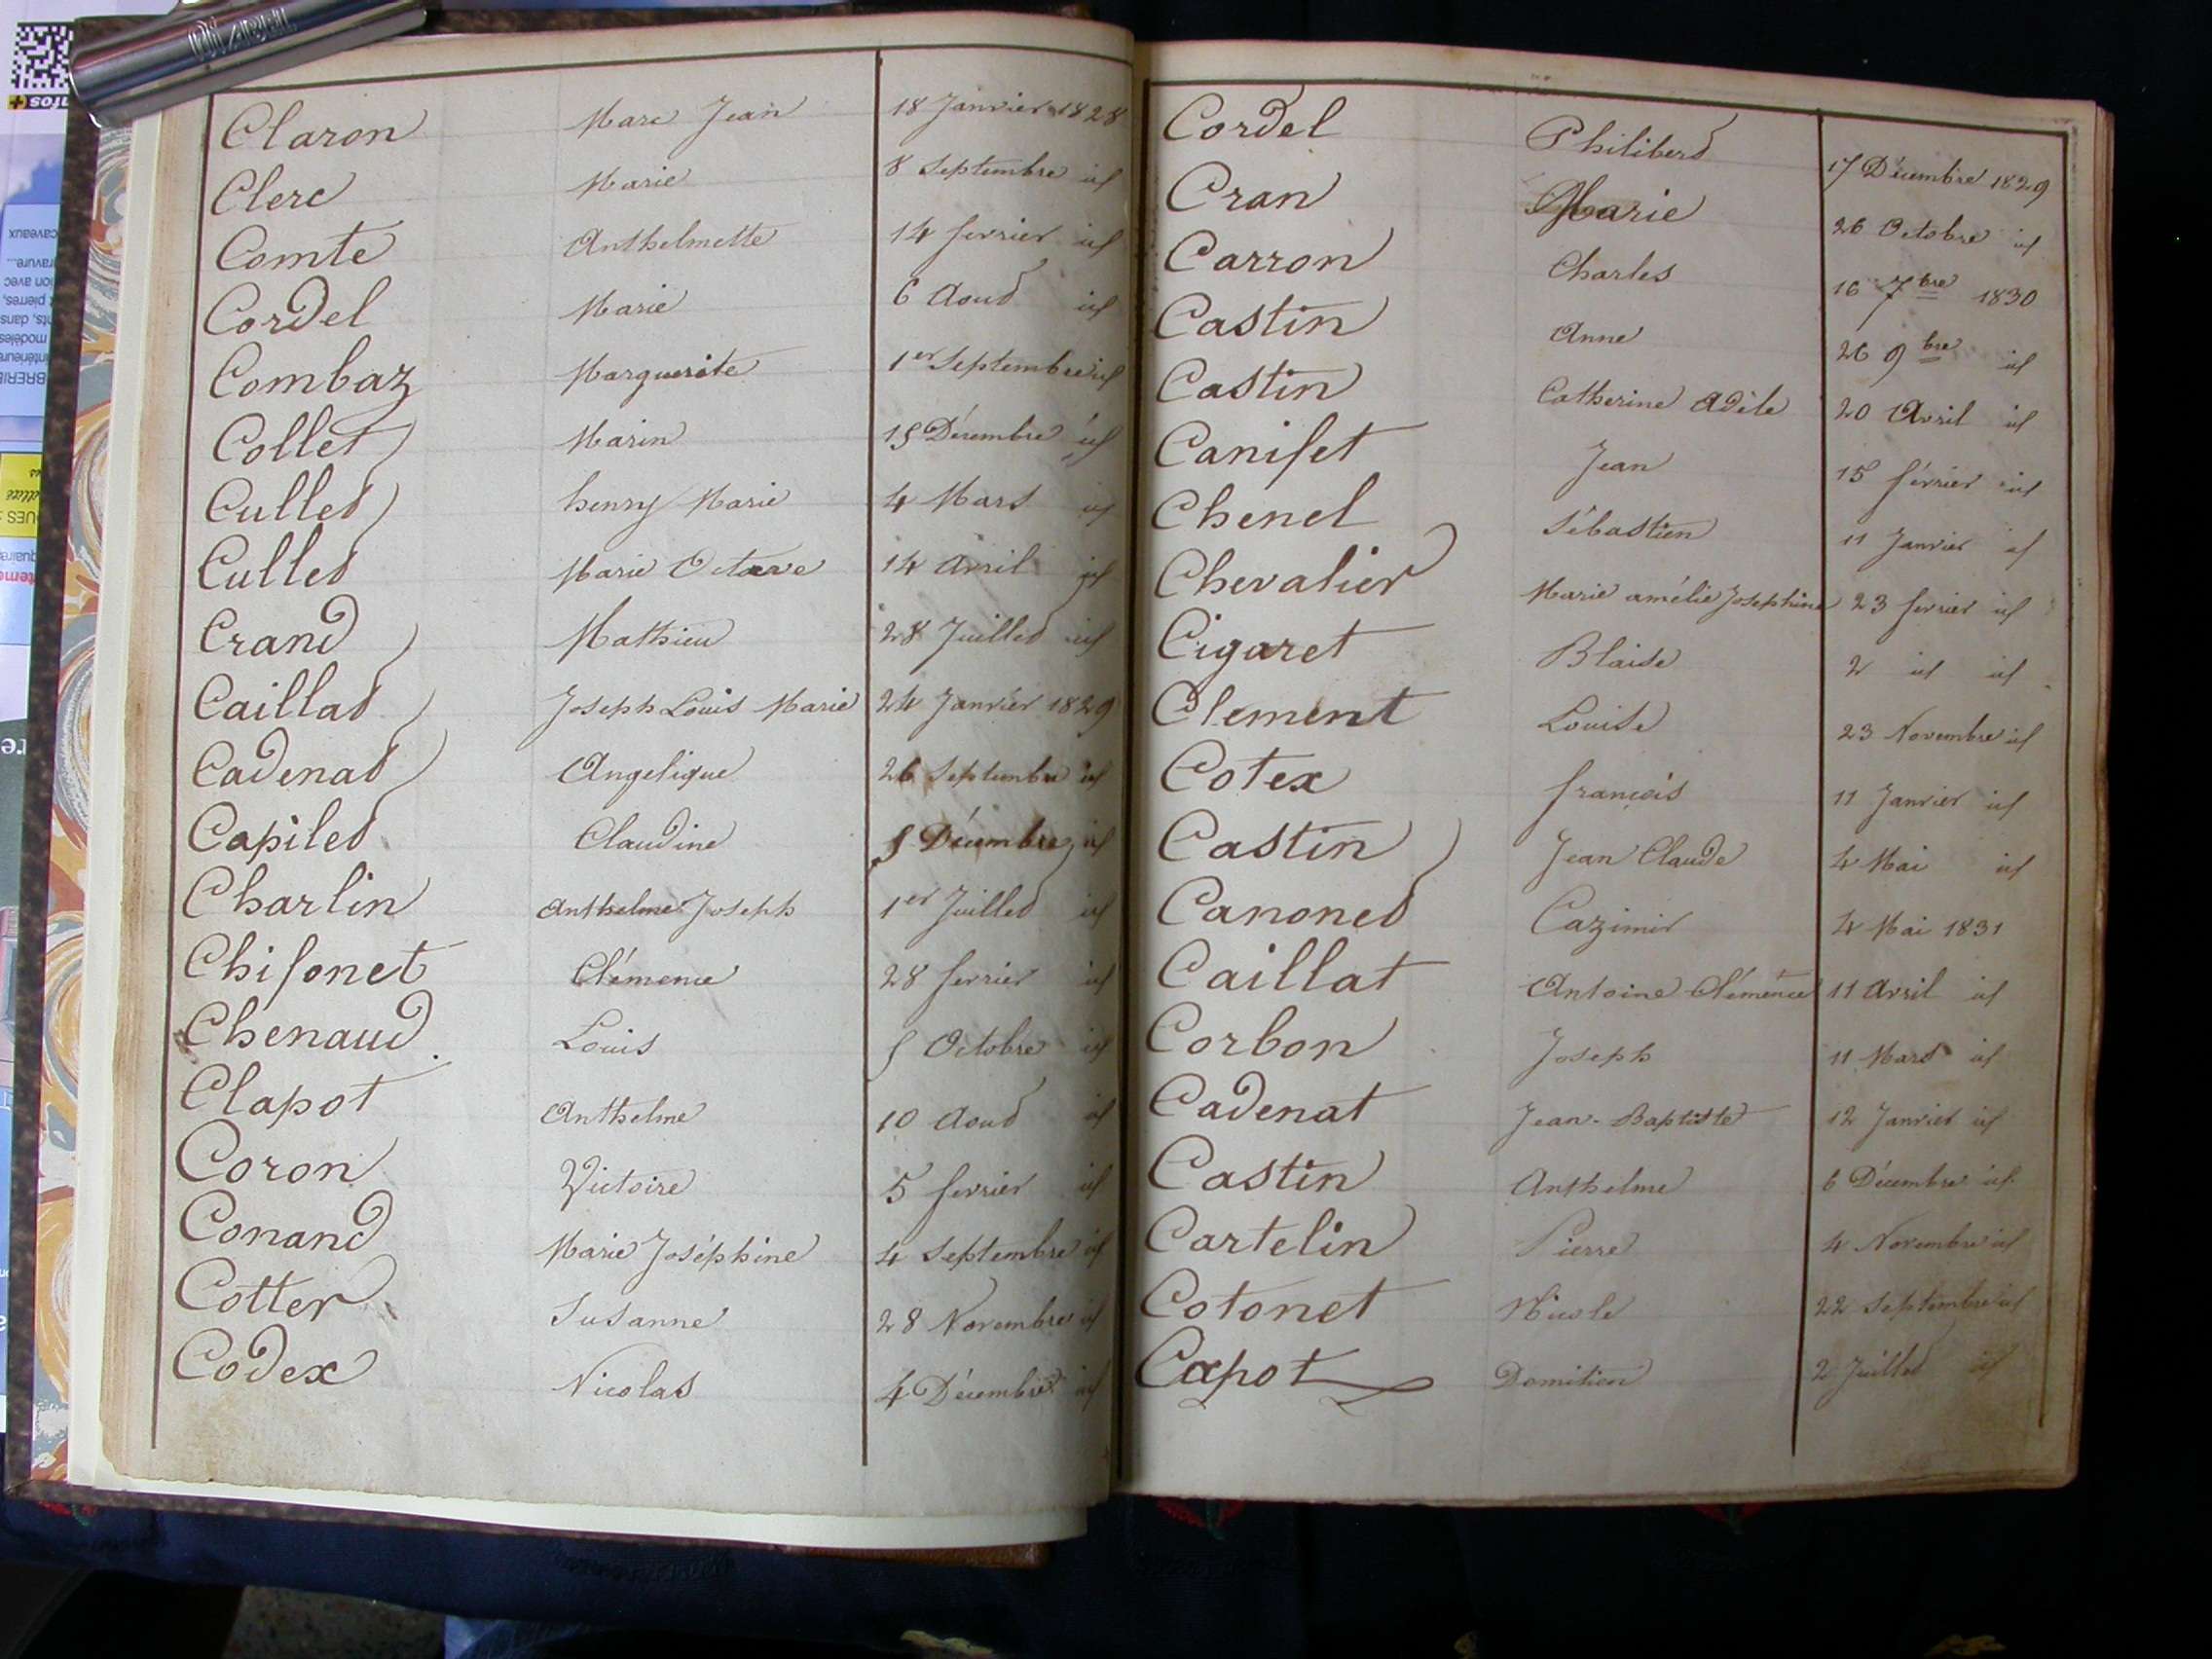 Claron Marc Jean 18 Janvier 1828
Clerc Marie 8 Septembre id
Comte Anthelmette 14 fevrier id
Cordel Marie 6 Aout id
Combaz Marguerite 1er Septembre id
Collet Marin 15 Décembre id
Cullet henry Marie 4 Mars id
Cullet Marie Octave 14 Avril id
Crand Mathieu 28 Juillet id
Caillat Joseph Louis Marie 24 Janvier 1829
Cadenat Angelique 26 Septembre id
Capilet Claudine 5 Décembre id
Charlin Anthelme Joseph 1er Juillet id
Chifonet Clémence 28 fevrier id
Chenaud Louis 5 Octobre id
Clapot Anthelme 10 Aout id
Coron Victoire 5 fevrier id
Conand Marie Joséphine 4 Septembre id
Cotter Susanne 28 Novembre id
Codex Nicolas 4 Décembre id
Cordel Philibert 17 Décembre 1829
Cran Marie 26 Octobre id
Carron Charles 16 7bre 1830
Castin Anne 26 9bre id
Castin Catherine Adèle 20 Avril id
Canifet Jean 15 février id
Chenel Sébastien 11 Janvier id
Chevalier Marie amélie Josephine 23 fevrier id
Cigaret Blaise 2 id id
Clement Louise 23 Novembre id
Cotex françois 11 Janvier id
Castin Jean Claude 4 Mai id
Canonet Cazimir 4 Mai 1831
Caillat Antoine Clémence 11 Avril id
Corbon Joseph 11 Mars id
Cadenat Jean-Baptiste 12 Janvier id
Castin Anthelme 6 Décembre id
Cartelin Pierre 4 Novembre id
Cotonet Nicole 22 Septembre id
Capot Domitien 2 Juillet id